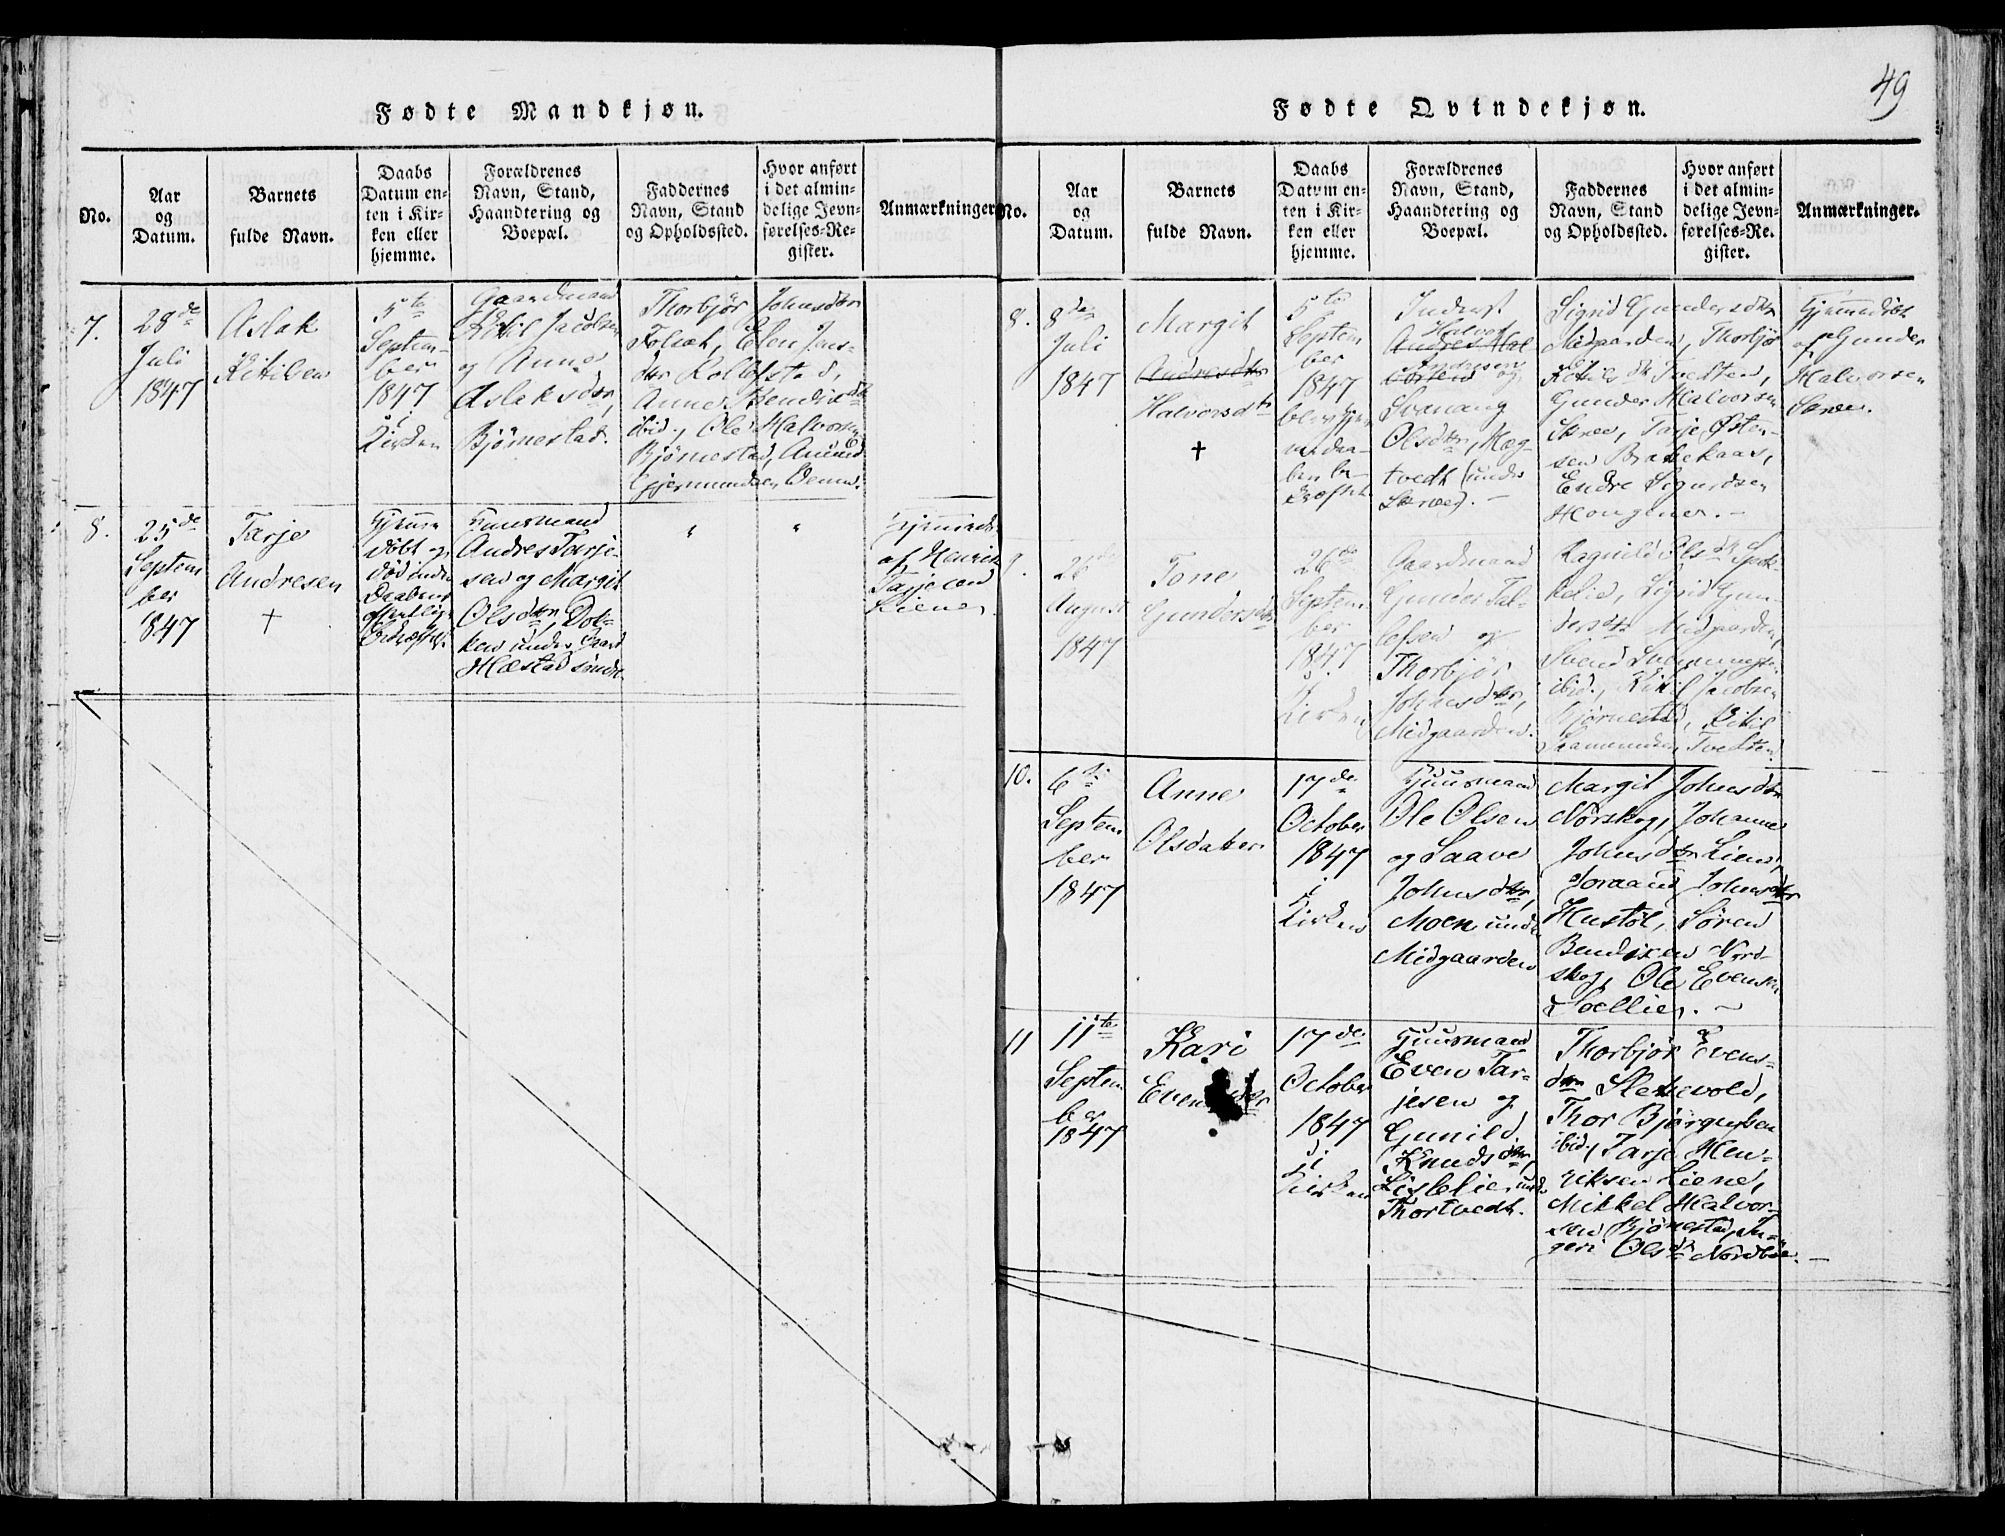 49
Fødte Mandkjøn.
No.
Aar
og
Datum.
Barnets
fulde Navn.
Daabs
Datum en-
ten i Kir-
ken eller
hjemme.
Forældrenes
Navn, Stand,
Haandtering og
Boepæl.
Faddernes
Navn, Stand
og Opholdssted.
Hvor anført
i det almin-
delige Jevn-
førelses-Re-
gister.
Anmærkninger
7.
28de
Juli
1847
Aslak
Kitilsen
5te
Septem-
ber
1847
i
Kirken
Gaardmand
Kitil Jacobsen
og Anne
Aslaksdtr,
Bjørnestad.
Thorbjør Johnsdtr
Folsæt, Elen Jens-
dtr Rollefstad,
Anne Bendixdtr
ibid., Ole Halvorsen
Bjørnestad, Amund
Gjermundsen
8.
25de
Septem
ber
1847
Tarje
Andresen
†
Hjemme
døbt og
død inden
Daabens
offentlige
Huusmand
Andres Tarje-
sen og Margit
Olsdtr, Dok-
ken under Gaard
Hæstad søndre
"
"
Hjemmedøbt
af Henrik
Tarjesen
Liene.
Fødte Qvindekjøn.
No.
Aar
og
Datum.
Barnets
fulde Navn.
Daabs
Datum en-
ten i Kir-
ken eller
hjemme.
Forældrenes
Navn, Stand,
Haandtering og
Boepæl.
Faddernes
Navn, Stand
og Opholdssted.
Hvor anført
i det almin-
delige Jevn-
førelses-Re-
gister.
Anmærkninger.
8.
8de
Juli
1847
Margit
Andresdtr
Halvorsdtr
†
5te
Septem
ber
1847
blev Hjem
medaa-
ben be-
kræftet
Inderst
Halvor
Andres Hal
Andresen
vorsen og
Svanaug
Olsdtr, Hæg-
tvedt (under
Skree). -
Sigrid Gundersdtr
Midgaarden, Thorbjør
Kitilsdtr Tvedten,
Gunder Halvorsen
Skree, Tarje Østen-
sen Brakekaas,
Endre Sigurdsen
Haugene. -
Hjemmedøbt
af Gunder
Halvorsen
Skree.
9.
August
1847
Tone
Gundersdtr
26de
Septem
ber
1847
i
Kirken
Gaardmand
Gunder Tal-
lefsen og
Thorbjør
Johnsdtr,
Midgaarden.
Ragnild Olsdtr
Sigrid Gun-
dersdtr Midgaarden,
Svend
ibid., Kitil Jacobsen
Bjørnestad, Kitil
Tvedten.
10.
6te
Septem
ber
1847
Anne
Olsdatter
17de
October
1847
i
Kirken
Huusmand
Ole Olsen
og Saave
Johnsdtr,
Moen under
Midgaarden
Margit Johnsdtr
Nørskog, Johanne
Johnsdtr Liene,
Joraand Johnsdtr
Hustøl, Søren
Bendixen Nord-
skog, Ole Evensen
11
11te
Septem
ber
1847
Kari
17de
October
1847
i
Kirken
Huusmand
Even Tar-
jesen og
Gunild
Knudsdtr,
Lislelie under
Thortvedt.
Thorbjør Evens-
dtr Slettevold,
Thor Bjørgufsen
ibid., Tarje Hen-
riksen Liene,
Mikkel Halvor-
sen Bjørnestad, In-
geri Olsdtr Nordbøe. -